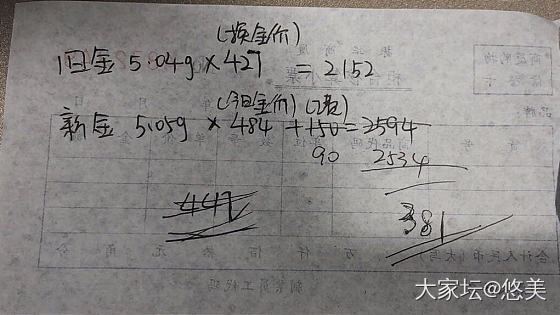 (换金价)
旧金 5.04g × 427 = 2152
(今日金价) (工费)
新金 5.05g × 484 + 150 = 2594
90 2534
447
381
合计人民币(大写) 万 仟 佰 拾 元 角 分
大家坛@悠美